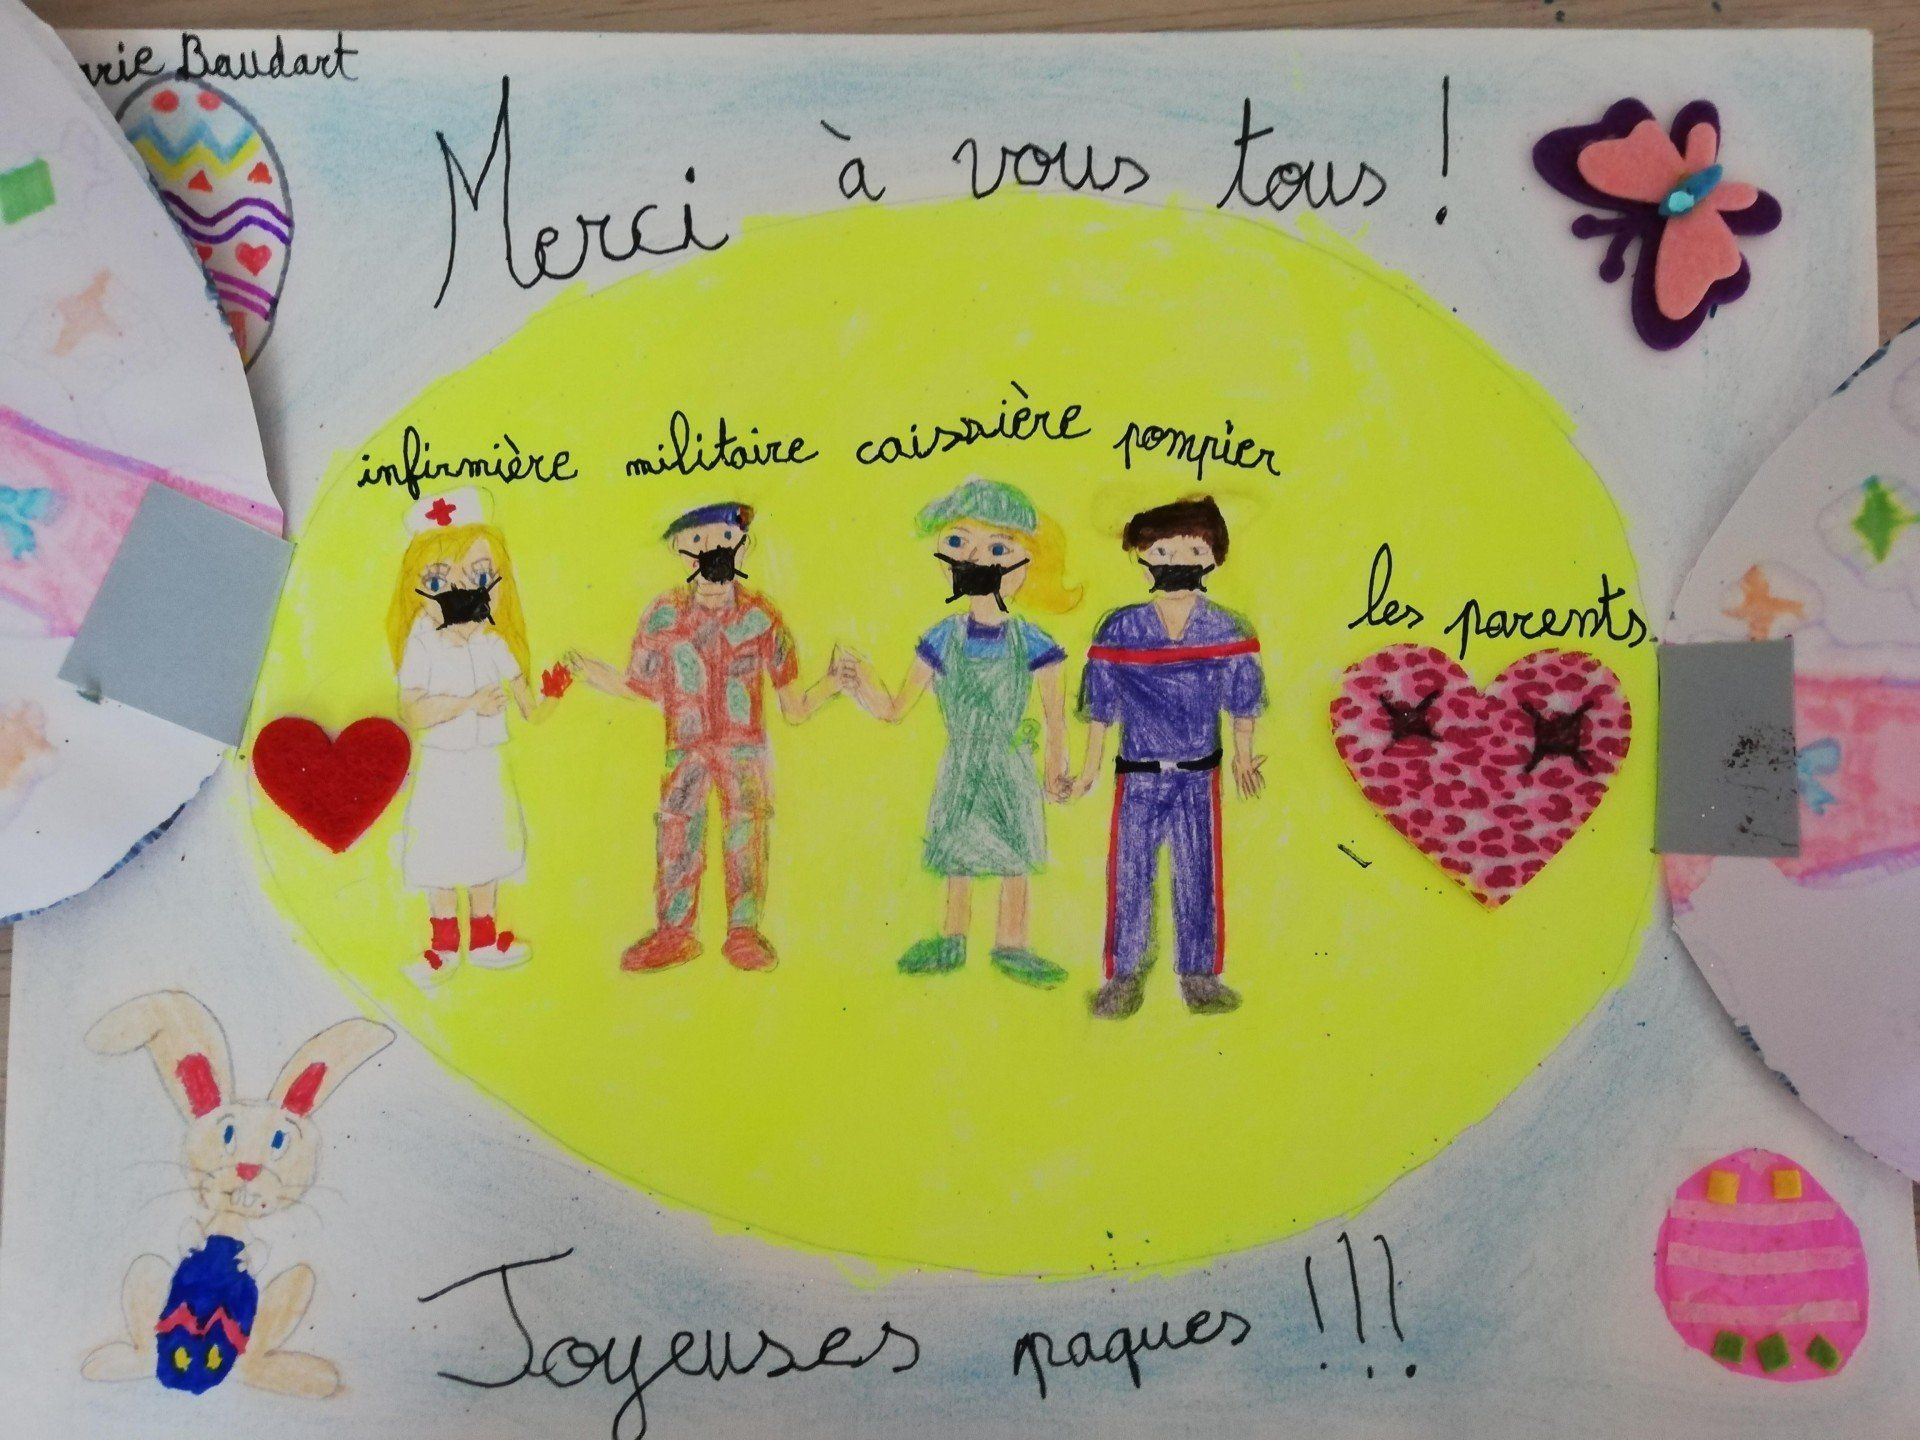 Baudart
Merci à vous tous !
infirmière militaire caissière pompier
les parents
Joyeuses paques !!!